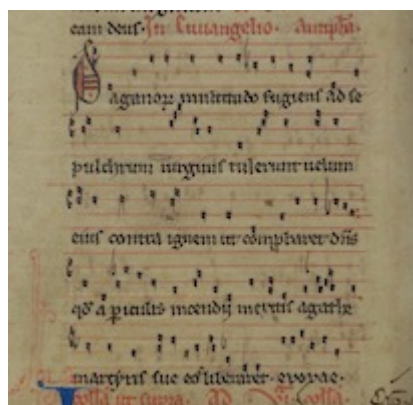 eam deus. In Euuangelio. Antipha.
Paganorum multitudo fugiens ad se
pulchrum uirginis tulerunt uelum
eius contra ignem ut comprobaret dns
qd a periculis incendii meritis agathe
martyris sue eos liberaret. euouae.
colla ut supra. Ad colla.